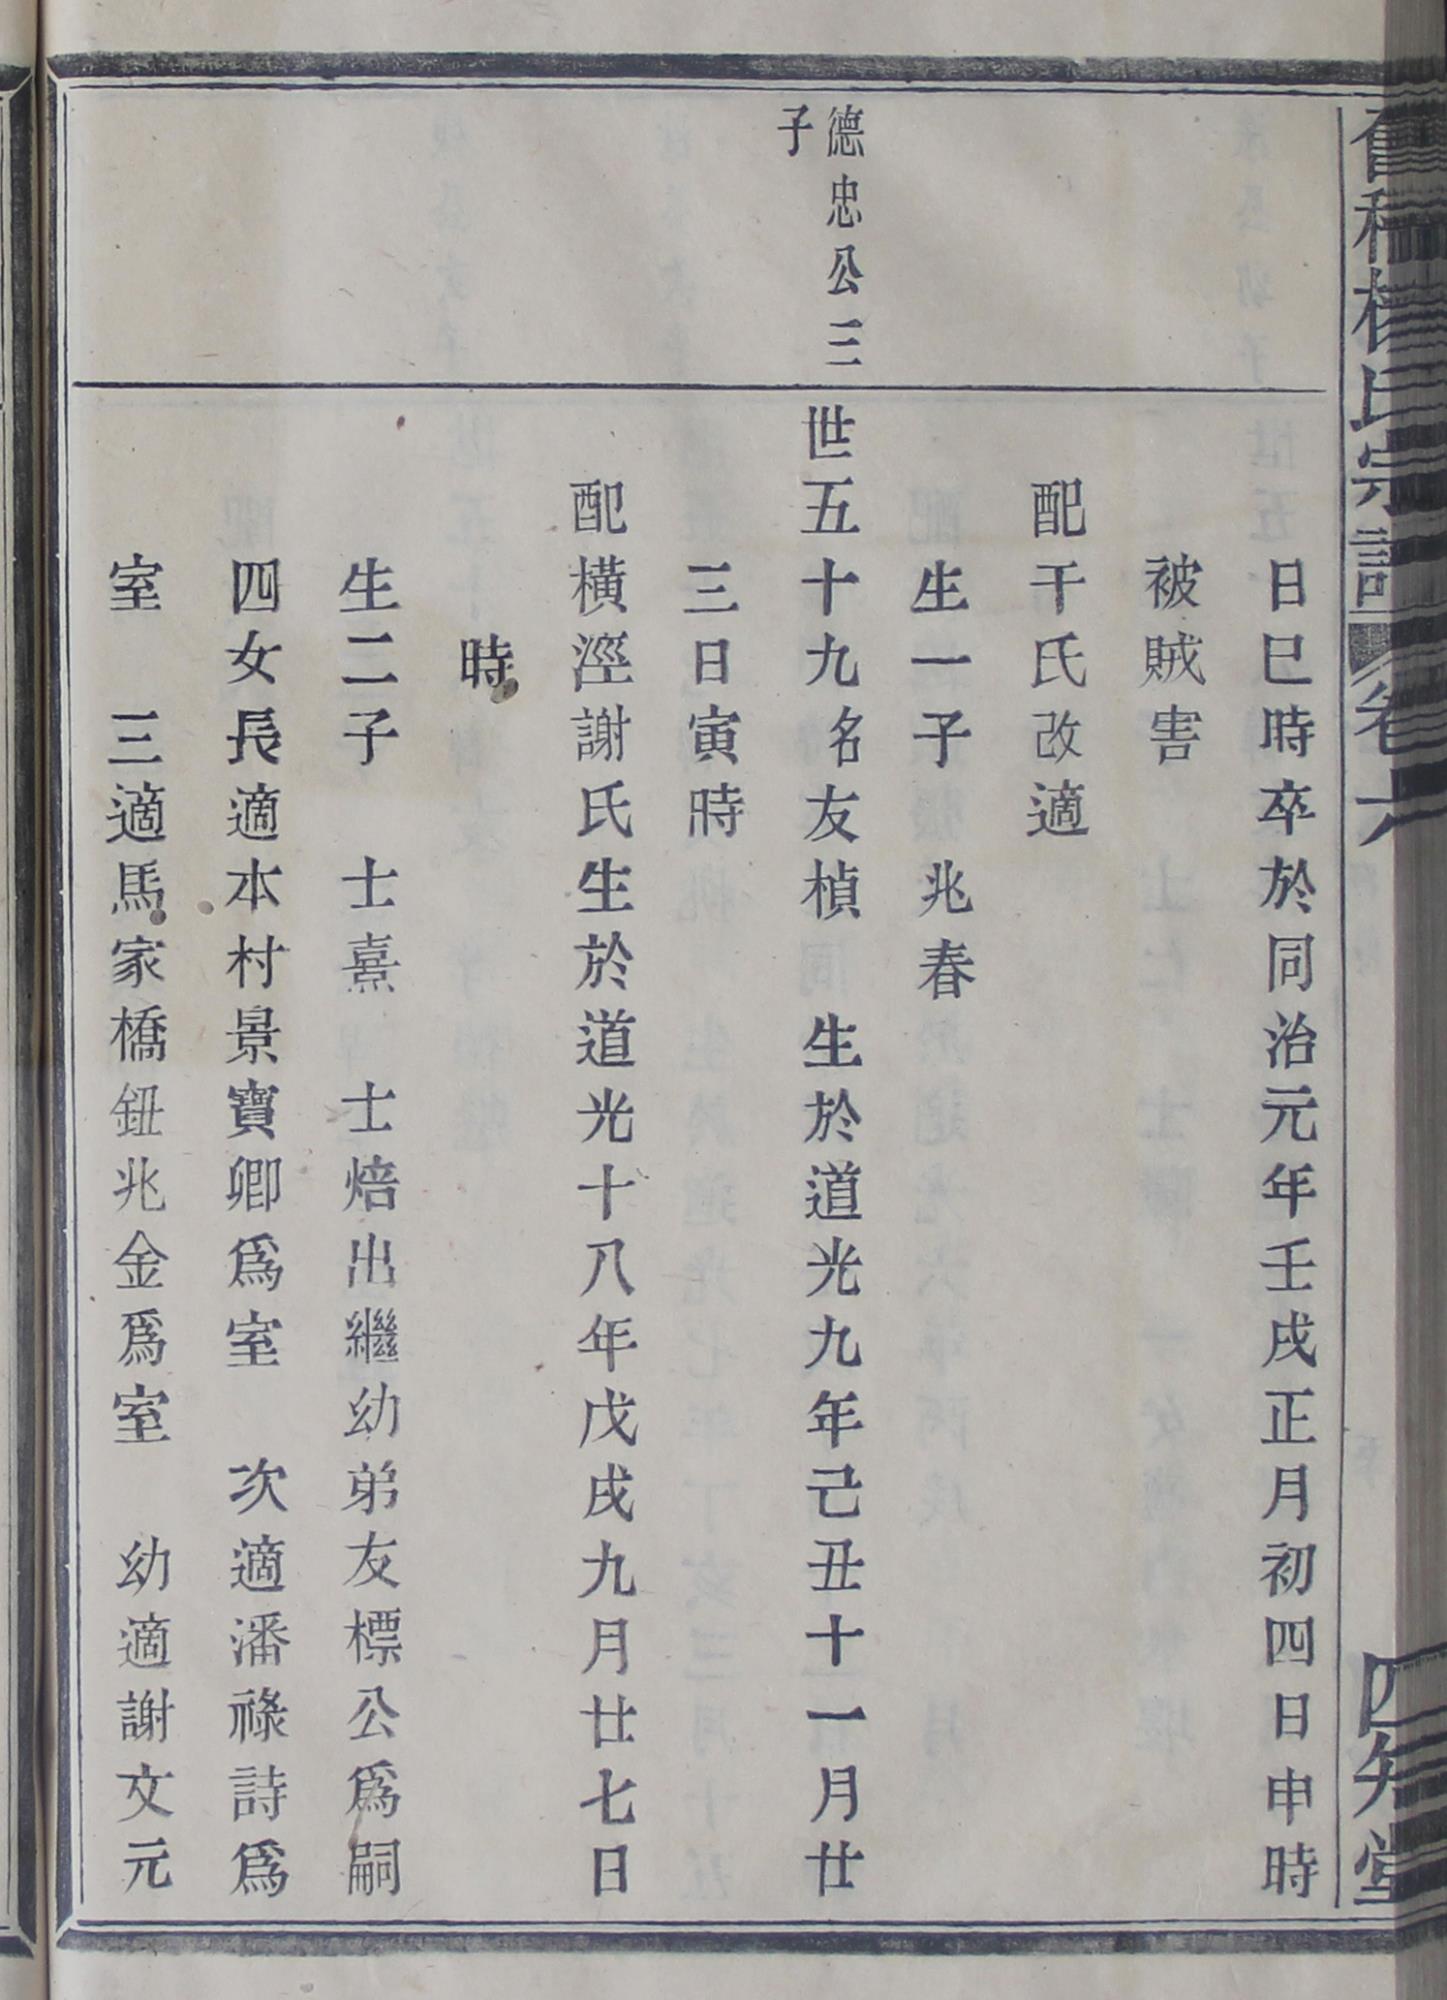 氏宗譜 卷六
四知堂
日巳時卒於同治元年壬戌正月初四日申時
被賊害
配干氏改適
生一子 兆春
德忠公三
子
世五十九名友楨 生於道光九年己丑十一月廿
三日寅時
配橫涇謝氏生於道光十八年戊戌九月廿七日
時
生二子 士熹 士焙出繼幼弟友標公爲嗣
四女長適本村景寶卿爲室 次適潘祿詩爲
室 三適馬家橋鈕兆金爲室 幼適謝文元